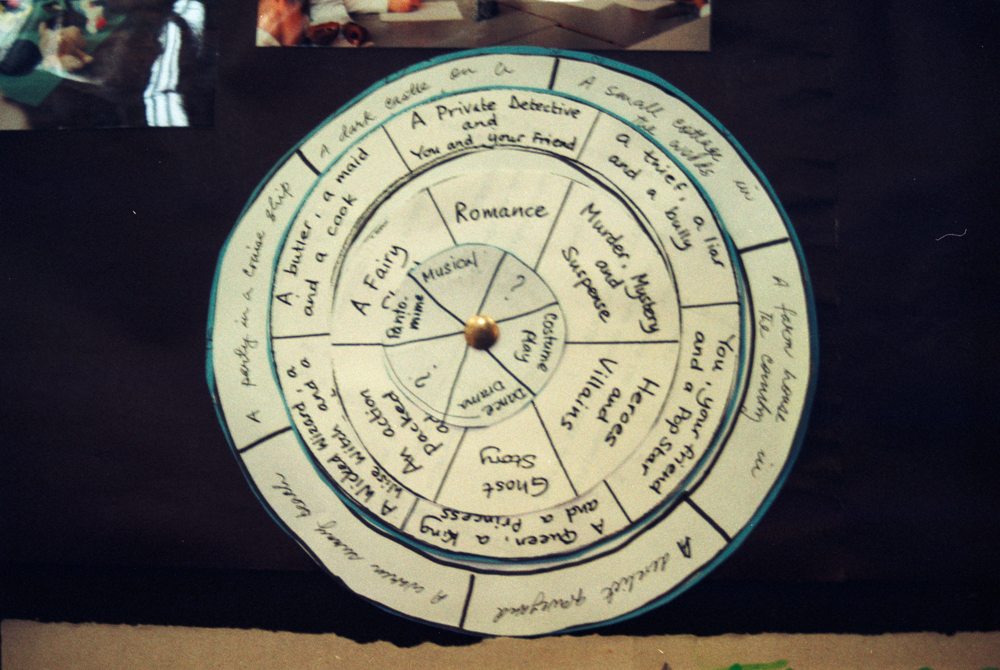 A dark castle on a
A small cottage in
the woods
A farm house in
The country
A derelict graveyard
A warm sunny beach
A party in a cruise ship
A Private Detective
and
You and your Friend
a thief, a liar
and a bully
You, your friend
and a Pop Star
A Queen, a King
and a Princess
A Wicked Wizard, a
Wise Witch and a
A butler, a maid
and a cook
Romance
Murder, Mystery
and
Suspense
Heroes
and
Villains
Ghost
Story
An action
packed
A Fairy
Musical
?
Costume
Play
Dance
Drama
?
Panto-
mime